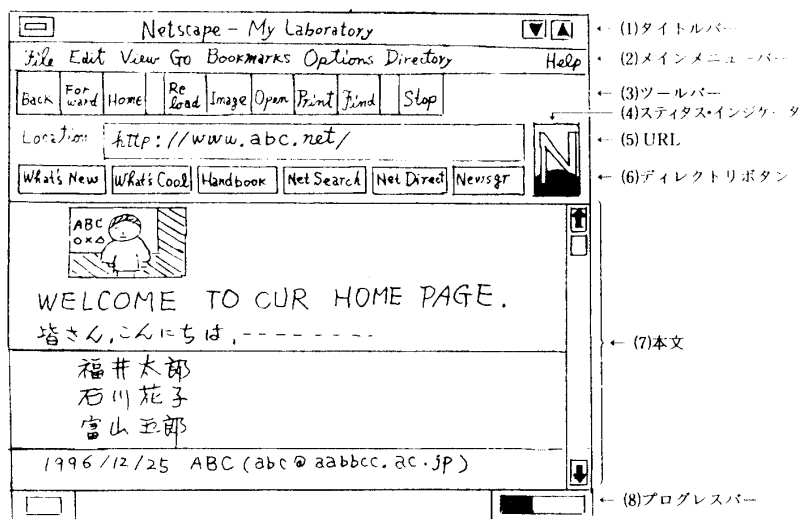 Netscape - My Laboratory
← (1)タイトルバー
File Edit View Go Bookmarks Options Directory Help
← (2)メインメニューバー
Back Forward Home Reload Image Open Print Find Stop
← (3)ツールバー
← (4)スティタス・インジケータ
Location http://www.abc.net/
← (5) URL
N
What's New What's Cool Handbook Net Search Net Direct Newsgr
← (6)ディレクトリボタン
ABC
○×△
WELCOME TO CUR HOME PAGE.
皆さん,こんにちは,---------
← (7)本文
福井太郎
石川花子
富山五郎
1996/12/25 ABC (abc@aabbcc.ac.jp)
← (8)プログレスバー